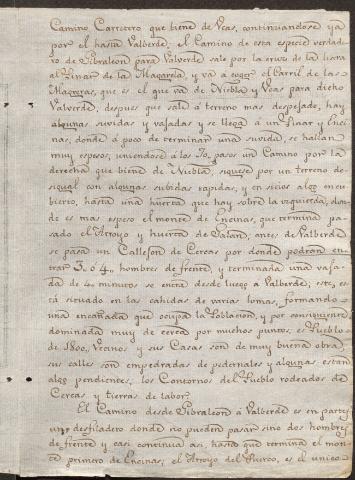 Camino Carretero que tiene de Veas, continuandose ya
por el hasta Valberde, el Camino de esta especie verdade-
ro de Gibraleon para Valverde sale por la cruz de la
al Pinar de la Magarria, y vá á coger el Carril de las
que es el que vá de Niebla y Veas para dicho
Valverde, despues que sale á terreno mas despejado, hay
algunas suvidas y vajadas y se llega á un Pinar y Enci-
nas, donde á poco de terminar una suvida, se hallan
muy espesos, uniendose á los 30, pasos un Camino por la
derecha que biene de Niebla, siguese por un terreno de-
sigual con algunas subidas rapidas, y en sitios algo encu-
bierto, hasta una huerta que hay sobre la izquierda, don-
de es mas espeso el monte de Encinas, que termina pa-
sado el Arroyo y huerta de antes de Valberde
se pasa un Callejon de Cercas por donde podran en-
trar 3. ó 4. hombres de frente, y terminada una vaja-
da de 4. minutos se entra desde luego a Valberde; este, es-
tá situado en las cahidas de varias lomas, formando
una encañada que ocupa la Poblacion, y por consiguiente
dominada muy de cerca por muchos puntos, es Pueblo
de 1800,, Vecinos y sus Casas son de muy buena obra
sus calles son empedradas de pedernales y algunas están
algo pendientes, los Contornos del Pueblo rodeados de
Cercas y tierras de labor.
El Camino desde Gibraleon á Valberde es en parte
un desfiladero donde no pueden pasar sino dos hombres
de frente y casi continua asi, hasta que termina el mon-
te primero de Encinas, el Arroyo del Puerco, es el unico